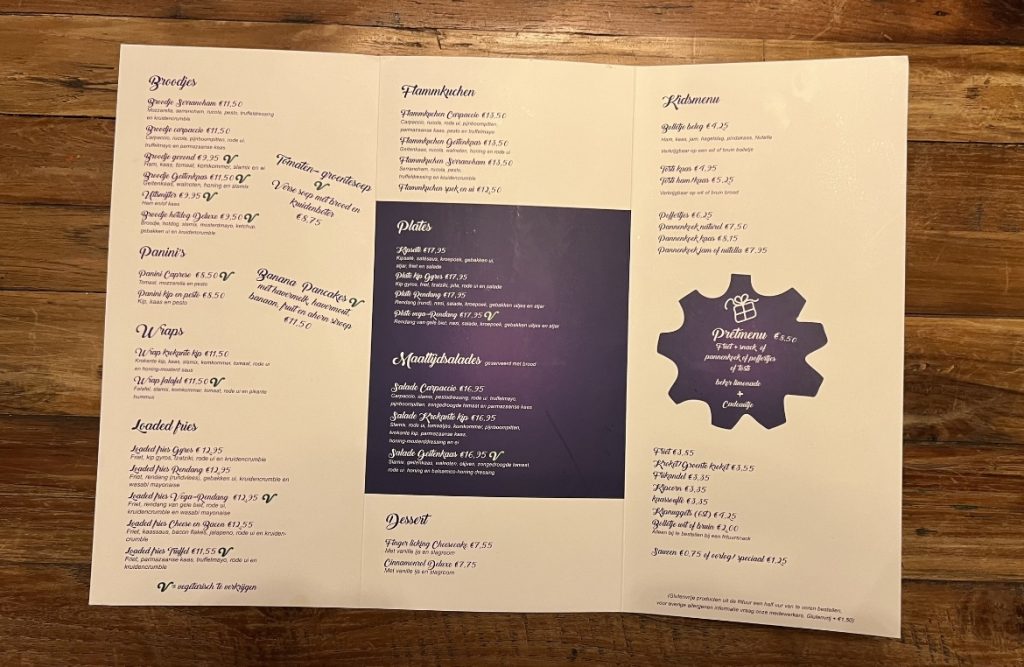 Broodjes
Broodje Serranoham €11,50
Mozzarella, serranoham, rucola, pesto, truffeldressing
en kruidencrumble
Broodje carpaccio €11,50
Carpaccio, rucola, rode ui, pijnboompitten, truffelmayo
en parmezaanse kaas
Broodje gezond €9,95 V
Ham, kaas, tomaat, komkommer, slamix en ei
Broodje Geitenkaas €11,50 V
Geitenkaas, walnoten, honing en slamix
Uitsmijter €9,95 V
Ham en/of kaas
Broodje hotdog Deluxe €9,50 V
Broodje, hotdog, slamix, mosterdmayo, ketchup,
gebakken ui en kruidencrumble
Tomaten- groentesoep
V
Verse soep met brood en
kruidenboter
€8,75
Panini's
Panini Caprese €8,50 V
Tomaat, mozzarella en pesto
Panini kip en pesto €8,50
Kip, kaas en pesto
Banana Pancakes V
met havermelk, havermout,
banaan, fruit en ahorn siroop
€11,50
Wraps
Wrap krokante kip €11,50
Krokante kip, kaas, slamix, komkommer, tomaat, rode ui
en honing-mosterd saus
Wrap falafel €11,50 V
Falafel, slamix, komkommer, tomaat, rode ui en pikante
hummus
Loaded fries
Loaded fries Gyros €12,95
Friet, kip gyros, tzatziki, rode ui en kruidencrumble
Loaded fries Rendang €12,95
Friet, rendang (rundvlees), gebakken ui, kruidencrumble en
wasabi mayonaise
Loaded fries Vega-Rendang €12,95 V
Friet, rendang van gele biet, rode ui,
kruidencrumble en wasabi mayonaise
Loaded fries Cheese en Bacon €12,55
Friet, kaassaus, bacon flakes, jalapeno, rode ui en kruiden-
crumble
Loaded fries Truffel €11,55 V
Friet, parmazaanse kaas, truffelmayo, rode ui en
kruidencrumble
V = vegetarisch te verkrijgen
Flammkuchen
Flammkuchen Carpaccio €13,50
Carpaccio, rucola, rode ui, pijnboompitten,
parmazaanse kaas, pesto en truffelmayo
Flammkuchen Geitenkaas €13,50
Geitenkaas, rucola, walnoten, honing en rode ui
Flammkuchen Serranoham €13,50
Serranoham, rucola, pesto,
truffeldressing en kruidencrumble
Flammkuchen spek en ui €12,50
Plates
Kipsaté €17,95
Kipsaté, satésaus, kroepoek, gebakken ui,
atjar, friet en salade
Plate kip Gyros €17,95
Kip gyros, friet, tzatziki, pita, rode ui en salade
Plate Rendang €17,95
Rendang (rund), nasi, salade, kroepoek, gebakken uitjes en atjar
Plate vega-Rendang €17,95 V
Rendang van gele biet, nasi, salade, kroepoek, gebakken uitjes en atjar
Maaltijdsalades geserveerd met brood
Salade Carpaccio €16,95
Carpaccio, slamix, pestodressing, rode ui, truffelmayo,
pijnboompitten, zongedroogde tomaat en parmazaanse kaas
Salade Krokante kip €16,95
Slamix, rode ui, tomaatjes, komkommer, pijnboompitten,
krokante kip, parmazaanse kaas,
honing-mosterddressing en ei
Salade Geitenkaas €16,95 V
Slamix, geitenkaas, walnoten, olijven, zongedroogde tomaat,
rode ui, honing en balsamico-honing dressing
Dessert
Finger licking Cheesecake €7,55
Met vanille ijs en slagroom
Cinnamonrol Deluxe €7,75
Met vanille ijs en slagroom
Kidsmenu
Bolletje beleg €4,25
Ham, kaas, jam, hagelslag, pindakaas, Nutella
Verkrijgbaar op een wit of bruin bolletje
Tosti kaas €4,95
Tosti ham/kaas €5,25
Verkrijgbaar op wit of bruin brood
Poffertjes €6,25
Pannenkoek naturel €7,50
Pannenkoek kaas €8,15
Pannenkoek jam of nutella €7,95
Pretmenu €8,50
Friet + snack of
pannenkoek of poffertjes
of tosti
+
beker limonade
+
Cadeautje
Friet €3,55
Kroket/Groente kroket €3,55
Frikandel €3,35
Kipcorn €3,35
kaassouflé €3,35
Kipnuggets (6st) €4,25
Bolletje wit of bruin €2,00
Alleen bij te bestellen bij een frituursnack
Sauzen €0,75 of oorlog/ speciaal €1,25
(Glutenvrije producten uit de frituur een half uur van te voren bestellen,
voor overige allergenen informatie vraag onze medewerkers. Glutenvrij + €1,50)